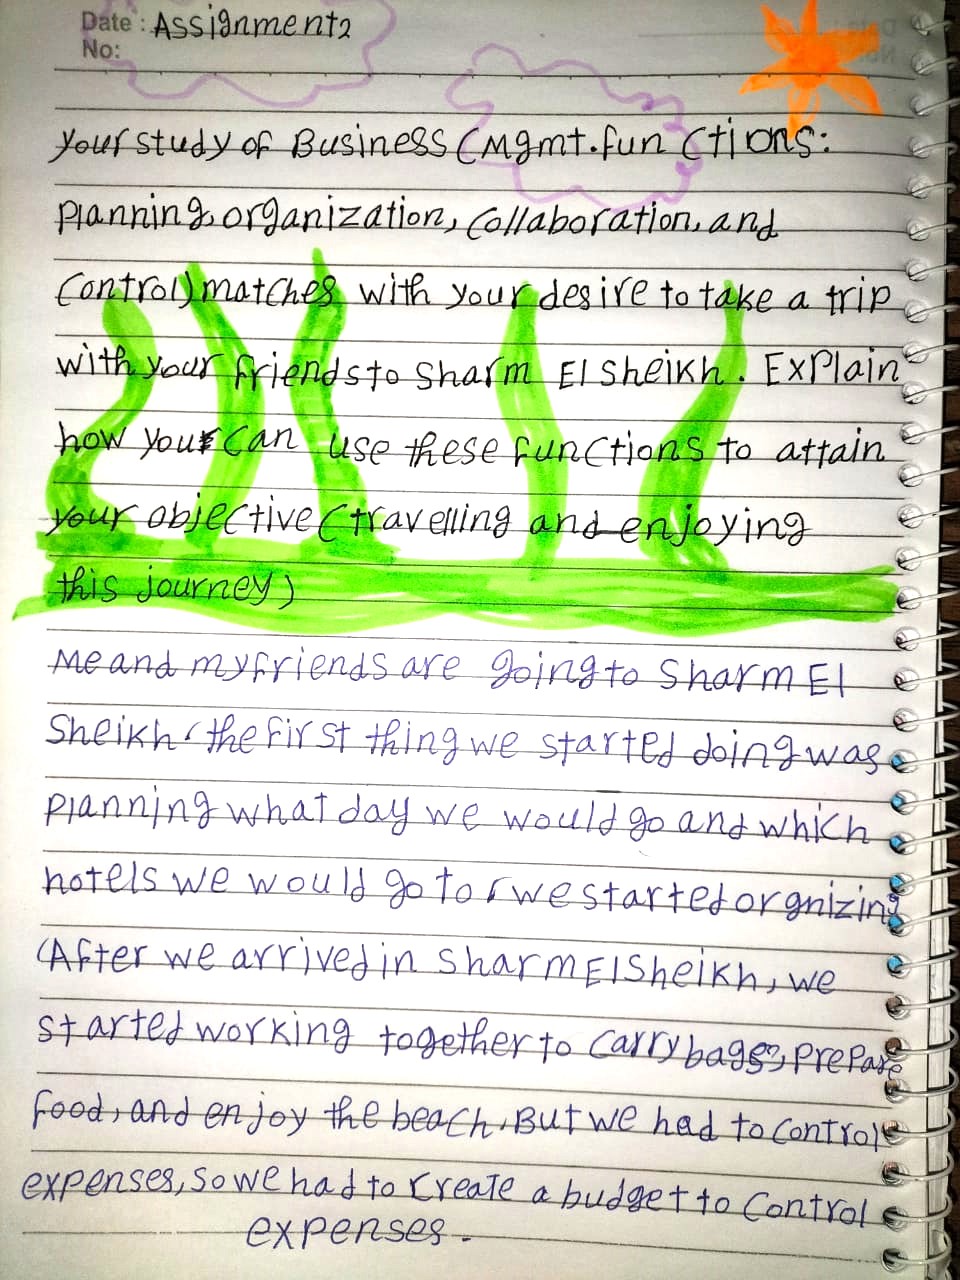 Date: Assignment2
No:
your study of Business (Mgmt. functions:
planning, organization, collaboration, and
control) matches with your desire to take a trip
with your friends to Sharm El Sheikh. Explain
how you can use these functions to attain
your objective (travelling and enjoying
this journey)
Me and my friends are going to Sharm El
Sheikh, the first thing we started doing was
planning what day we would go and which
hotels we would go to, we started orgnizing
(After we arrived in Sharm El Sheikh, we
started working together to carry bags, prepare
food, and enjoy the beach, But we had to control
expenses, so we had to create a budget to control
expenses.